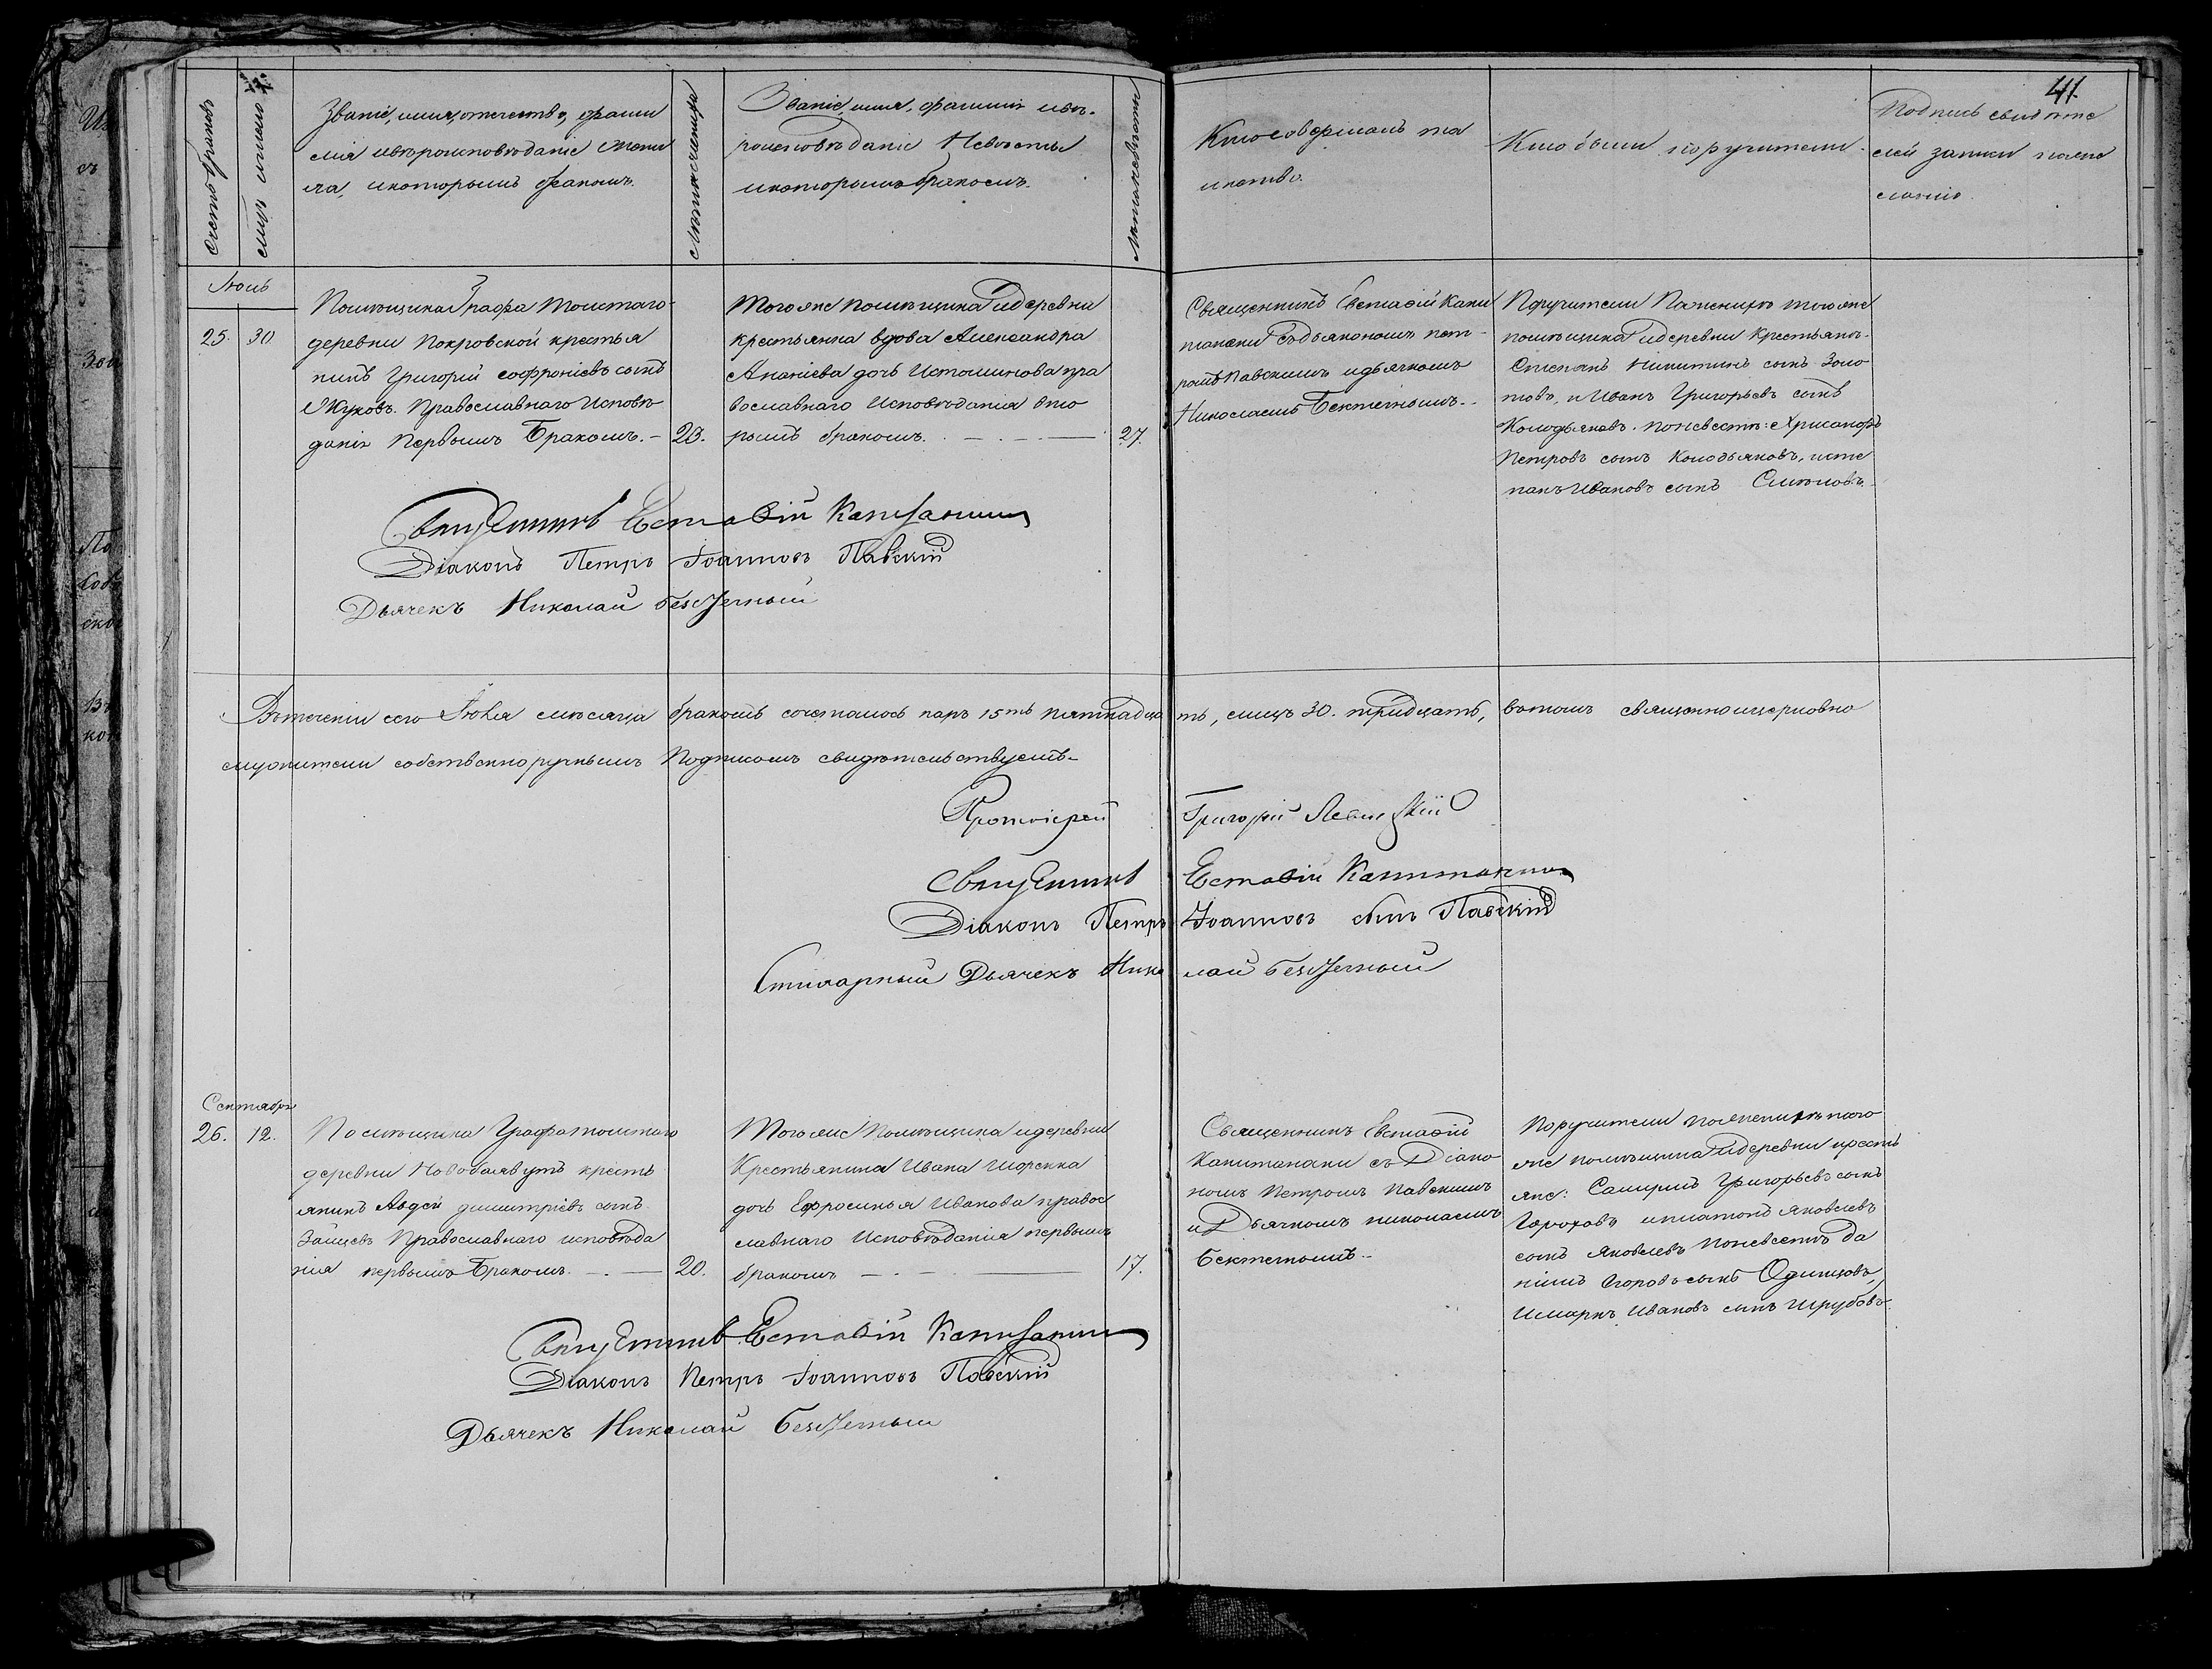 41.
Счетъ браковъ
мцъ число
Званіе, имя, отечество, фами
лія ивѣроисповѣданіе Жени
ха, икоторымъ бракомъ.
Лѣта жениха
Званіе, имя, фамилія ивѣ-
роисповѣданіе Невѣсты
икоторымъ бракомъ.
Лѣта невѣсты
Кто совершалъ та
инство.
Кто были поручители.
Подпись свидѣте
лей записи пожела
нію
Іюль
25. 30
Помѣщика Графа Толстаго
деревни Покровской крестья
нинъ Григорій Софроніевъ сынъ
Жуковъ. Православнаго Исповѣ
данія Первымъ Бракомъ. - 23.
Тогоже помѣщика Идеревни
крестьянка вдова Александра
Ананіева дочь Истоминова пра
вославнаго Исповѣданія вто
рымъ бракомъ. 27.
Священникъ Евстафій Капи
танаки Съдьякономъ пет-
ромъ Павскимъ идьячкомъ
Николаемъ
Поручители Поженихѣ тогоже
помѣщика Идеревни Крестьянъ-
Степанъ Никитинъ сынъ Золо
товъ, и Иванъ Григорьевъ сынъ
Колодьяковъ. поневѣстѣ: Хрисанфъ
Петровъ сынъ Колодьяковъ, исте
панъ Ивановъ сынъ
Священникъ Естафій Капитанаки
Діаконъ Петръ Іоанновъ Павскій
Дьячекъ Николай Безсчетный
Втеченіи сего Іюля мѣсяца бракомъ сочеталось паръ 15ть пятнадцать, лицъ 30. тридцать, втомъ священноицерковно
служители собственноручнымъ Подписомъ свидѣтельствуемъ-
Протоіерей Григорій
Священникъ Естафій Капитанаки
Діаконъ Петръ Іоанновъ сынъ Павскій
Стихарный Дьячекъ Николай Безсчетный
Сентября
26. 12.
Помѣщика Графа толстаго
деревни крестъ
янинъ Авдей димитріевъ сынъ
Зайцевъ Православнаго исповѣда
нія первымъ Бракомъ. 20.
Тогоже Помѣщика идеревни
Крестьянина Ивана
дочь Ефросинья Иванова правос
лавнаго Исповѣданія первымъ
бракомъ 17.
Священникъ Евстафій
Капитанаки съ Діако
номъ Петромъ Павскимъ
и Дьячкомъ николаемъ
Поручители поженихѣ того
же помѣщика Идеревни крестъ
яне: Григорьевъ сынъ
Гороховъ иплатонъ Яковлевъ
сынъ Яковлевъ Поневѣстѣ Да
ніилъ Егоровъ сынъ Одинцовъ,
Имаркъ Ивановъ сынъ Шрубовъ.
Священникъ Естафій Капитанаки
Діаконъ Петръ Іоанновъ Павскій
Дьячекъ Николай Безсчетный